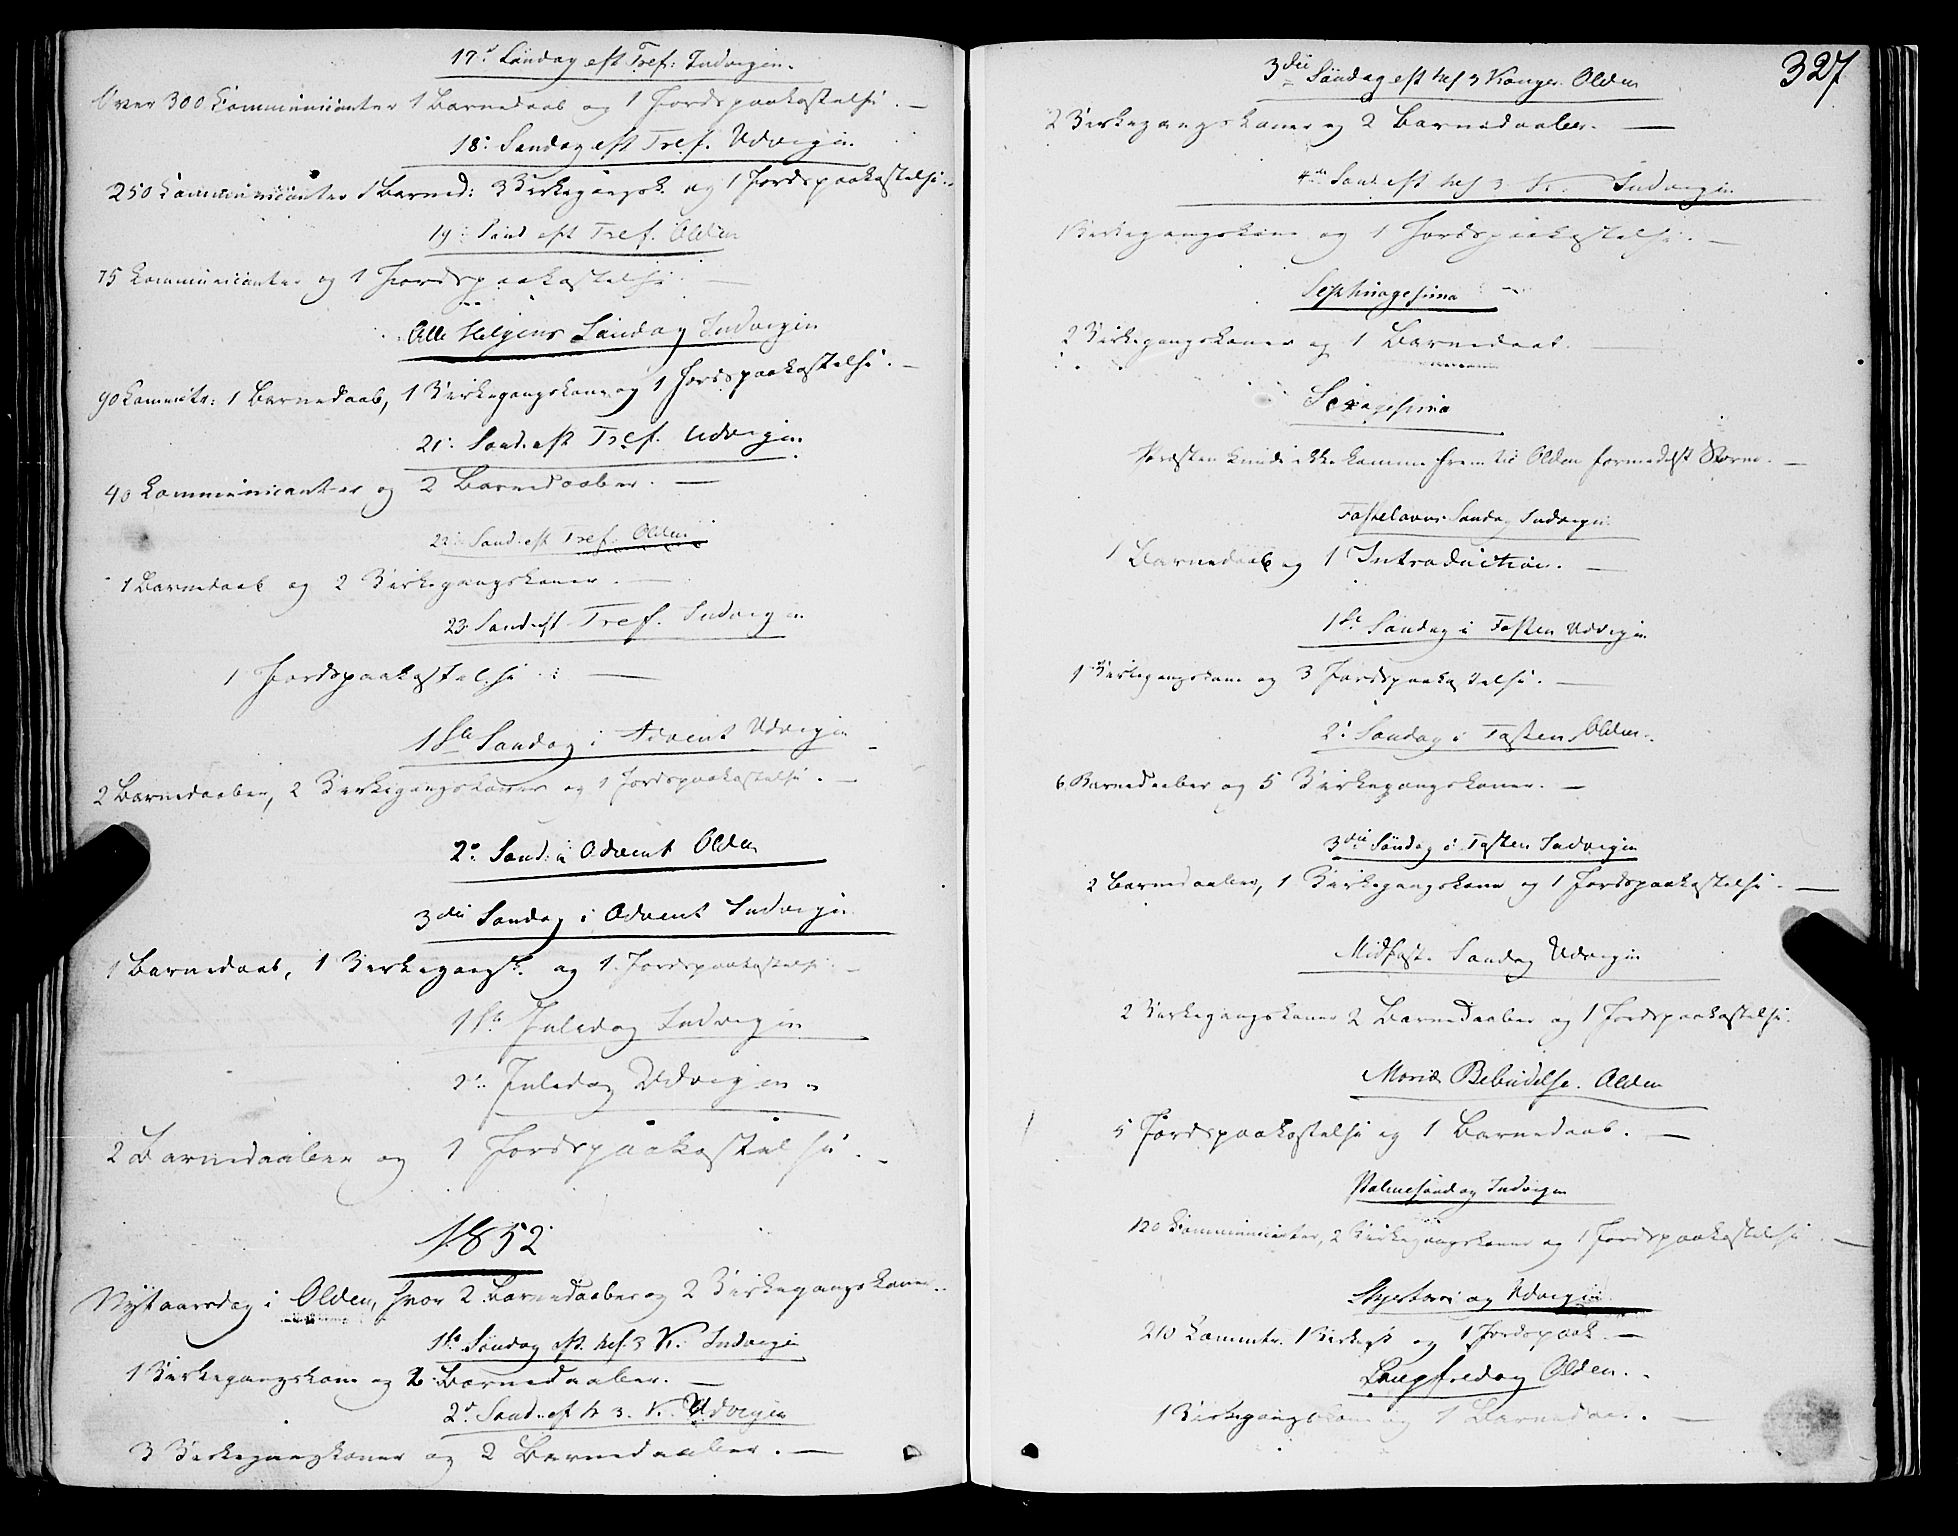 17d Søndag eft Tref: Indvigen.
Over 300 Communicanter 1 Barnedaab og 1 Jordspaakastelse. —
18: Søndag eft Tref. Udvigen
250 Communicanter 1 Barned: 3 Kirkegangsk. og 1 Jordspaakastelse.
19: Sønd eft Tref. Olden
75 Communicanter og 1 Jordspaakastelse. —
Alle Helgens Søndag Indvigen
90 Commcte: 1 Barnedaab, 1 Kirkegangskone og 1 Jordspaakastelse. —
21: Sønd. eft Tref. Udvigen.
40 Communicanter og 2 Barnedaaber. —
22: Sønd. eft Tref. Olden
1 Barnedaab og 2 Kirkegangskoner. —
23. Sønd. eft Tref. Indvigen
1 Jordspaakastelse. —
1ste Søndag i Advent Udvigen
2 Barnedaaber, 2 Kirkegangskoner og 1 Jordspaakastelse. —
2: Sønd: i Advent Olden
3die Søndag i Advent Indvigen
1 Barnedaab, 1 Kirkegangsk. og 1. Jordspaakastelse. —
1ste Juledag Indvigen
2: Juledag Udvigen.
2 Barnedaaber og 1 Jordspaakastelse. —
1852
Nytaarsdag i Olden, hvor 2 Barnedaaber og 2 Kirkegangskoner.
1ste Søndag eft. hel. 3 K: Indvigen
1 Kirkegangskone og 2 Barnedaaber. —
2d Sønd. eft h 3. K. Udvigen
3 Kirkegangskoner og 2 Barnedaaber. —
327
3die Søndag eft hel 3 Konger. Olden
2 Kirkegangskoner og 2 Barnedaaber. —
4de Sønd. eft hel 3. K. Indvigen
1 Kirkegangskone og 1 Jordspaakastelse. —
Septuagesima
2 Kirkegangskoner og 1 Barnedaab. —
Sexagesima
Præsten kunde ikke komme frem til Olden formedelst Storm. —
Fastelavns Søndag Indvigen
1 Barnedaab og 1 Introduction. —
1ste Søndag i Fasten Udvigen
1 Kirkegangskone og 3 Jordspaakastelse. —
2: Søndag i Fasten Olden.
6 Barnedaaber og 5 Kirkegangskoner. —
3die Søndag i Fasten Indvigen
2 Barnedaaber, 1 Kirkegangskone og 1 Jordspaakastelse. —
Midfaste Søndag Udvigen
2 Kirkegangskoner 2 Barnedaaber og 1 Jordspaakastelse.
Mariæ Bebudelse. Olden
5 Jordspaakastelse og 1 Barnedaab. —
Palmesøndag Indvigen
120 Communicanter, 2 Kirkegangskoner og 1 Jordspaakastelse. —
Skjertorsd og Udvigen
210 Commctr. 1 Kirkegk og 1 Jordspaak. —
Langfredag Olden.
1 Kirkegangskone og 1 Barnedaab. —